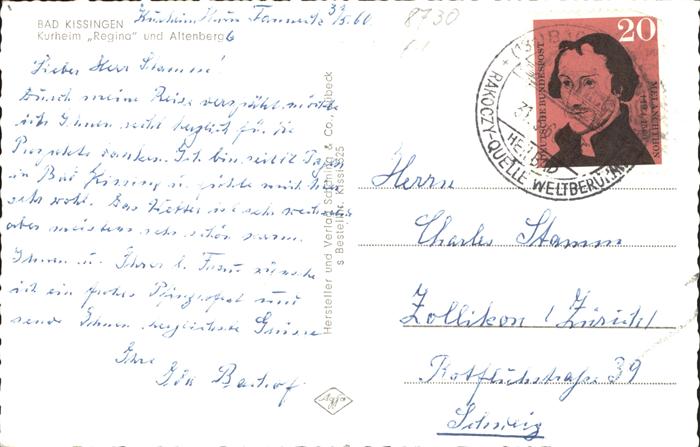 BAD KISSINGEN
Kurheim „Regina“ und Altenberg
Kurheim Haus
31/5.60
8730
Lieber Herr Stamm!
Durch meine Reise verspätet möchte
ich Ihnen recht herzlich für die
Prospekte danken. Ich bin seit 12 Tagen
in Bad Kissing u. fühle mich hier
sehr wohl. Das Wetter ist sehr wechselnd
aber meistens sehr schön warm.
Ihnen u. Ihrer l. Frau wünsche
ich ein frohes Pfingstfest und
sende Ihnen herzlichste Grüsse
Ihre
Ida
Hersteller und Verlag Schöning & Co., Lübeck
Bestell-Nr. Kissi
Agfa
20
DEUTSCHE BUNDESPOST
MELANCHTHON
RAKOCZY-QUELLE WELTBERÜHMT
HEILBAD
31.
Herrn
Charles Stamm
Zollikon / Zürich
Rotfluhstraße 39
Schweiz